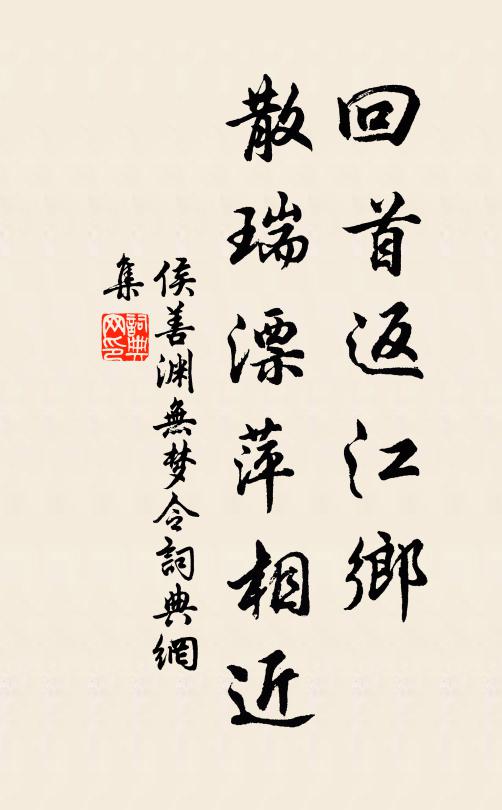 回首返江鄉
散瑞漂萍相近
侯善渊無梦令詞典網
集
詞典網印